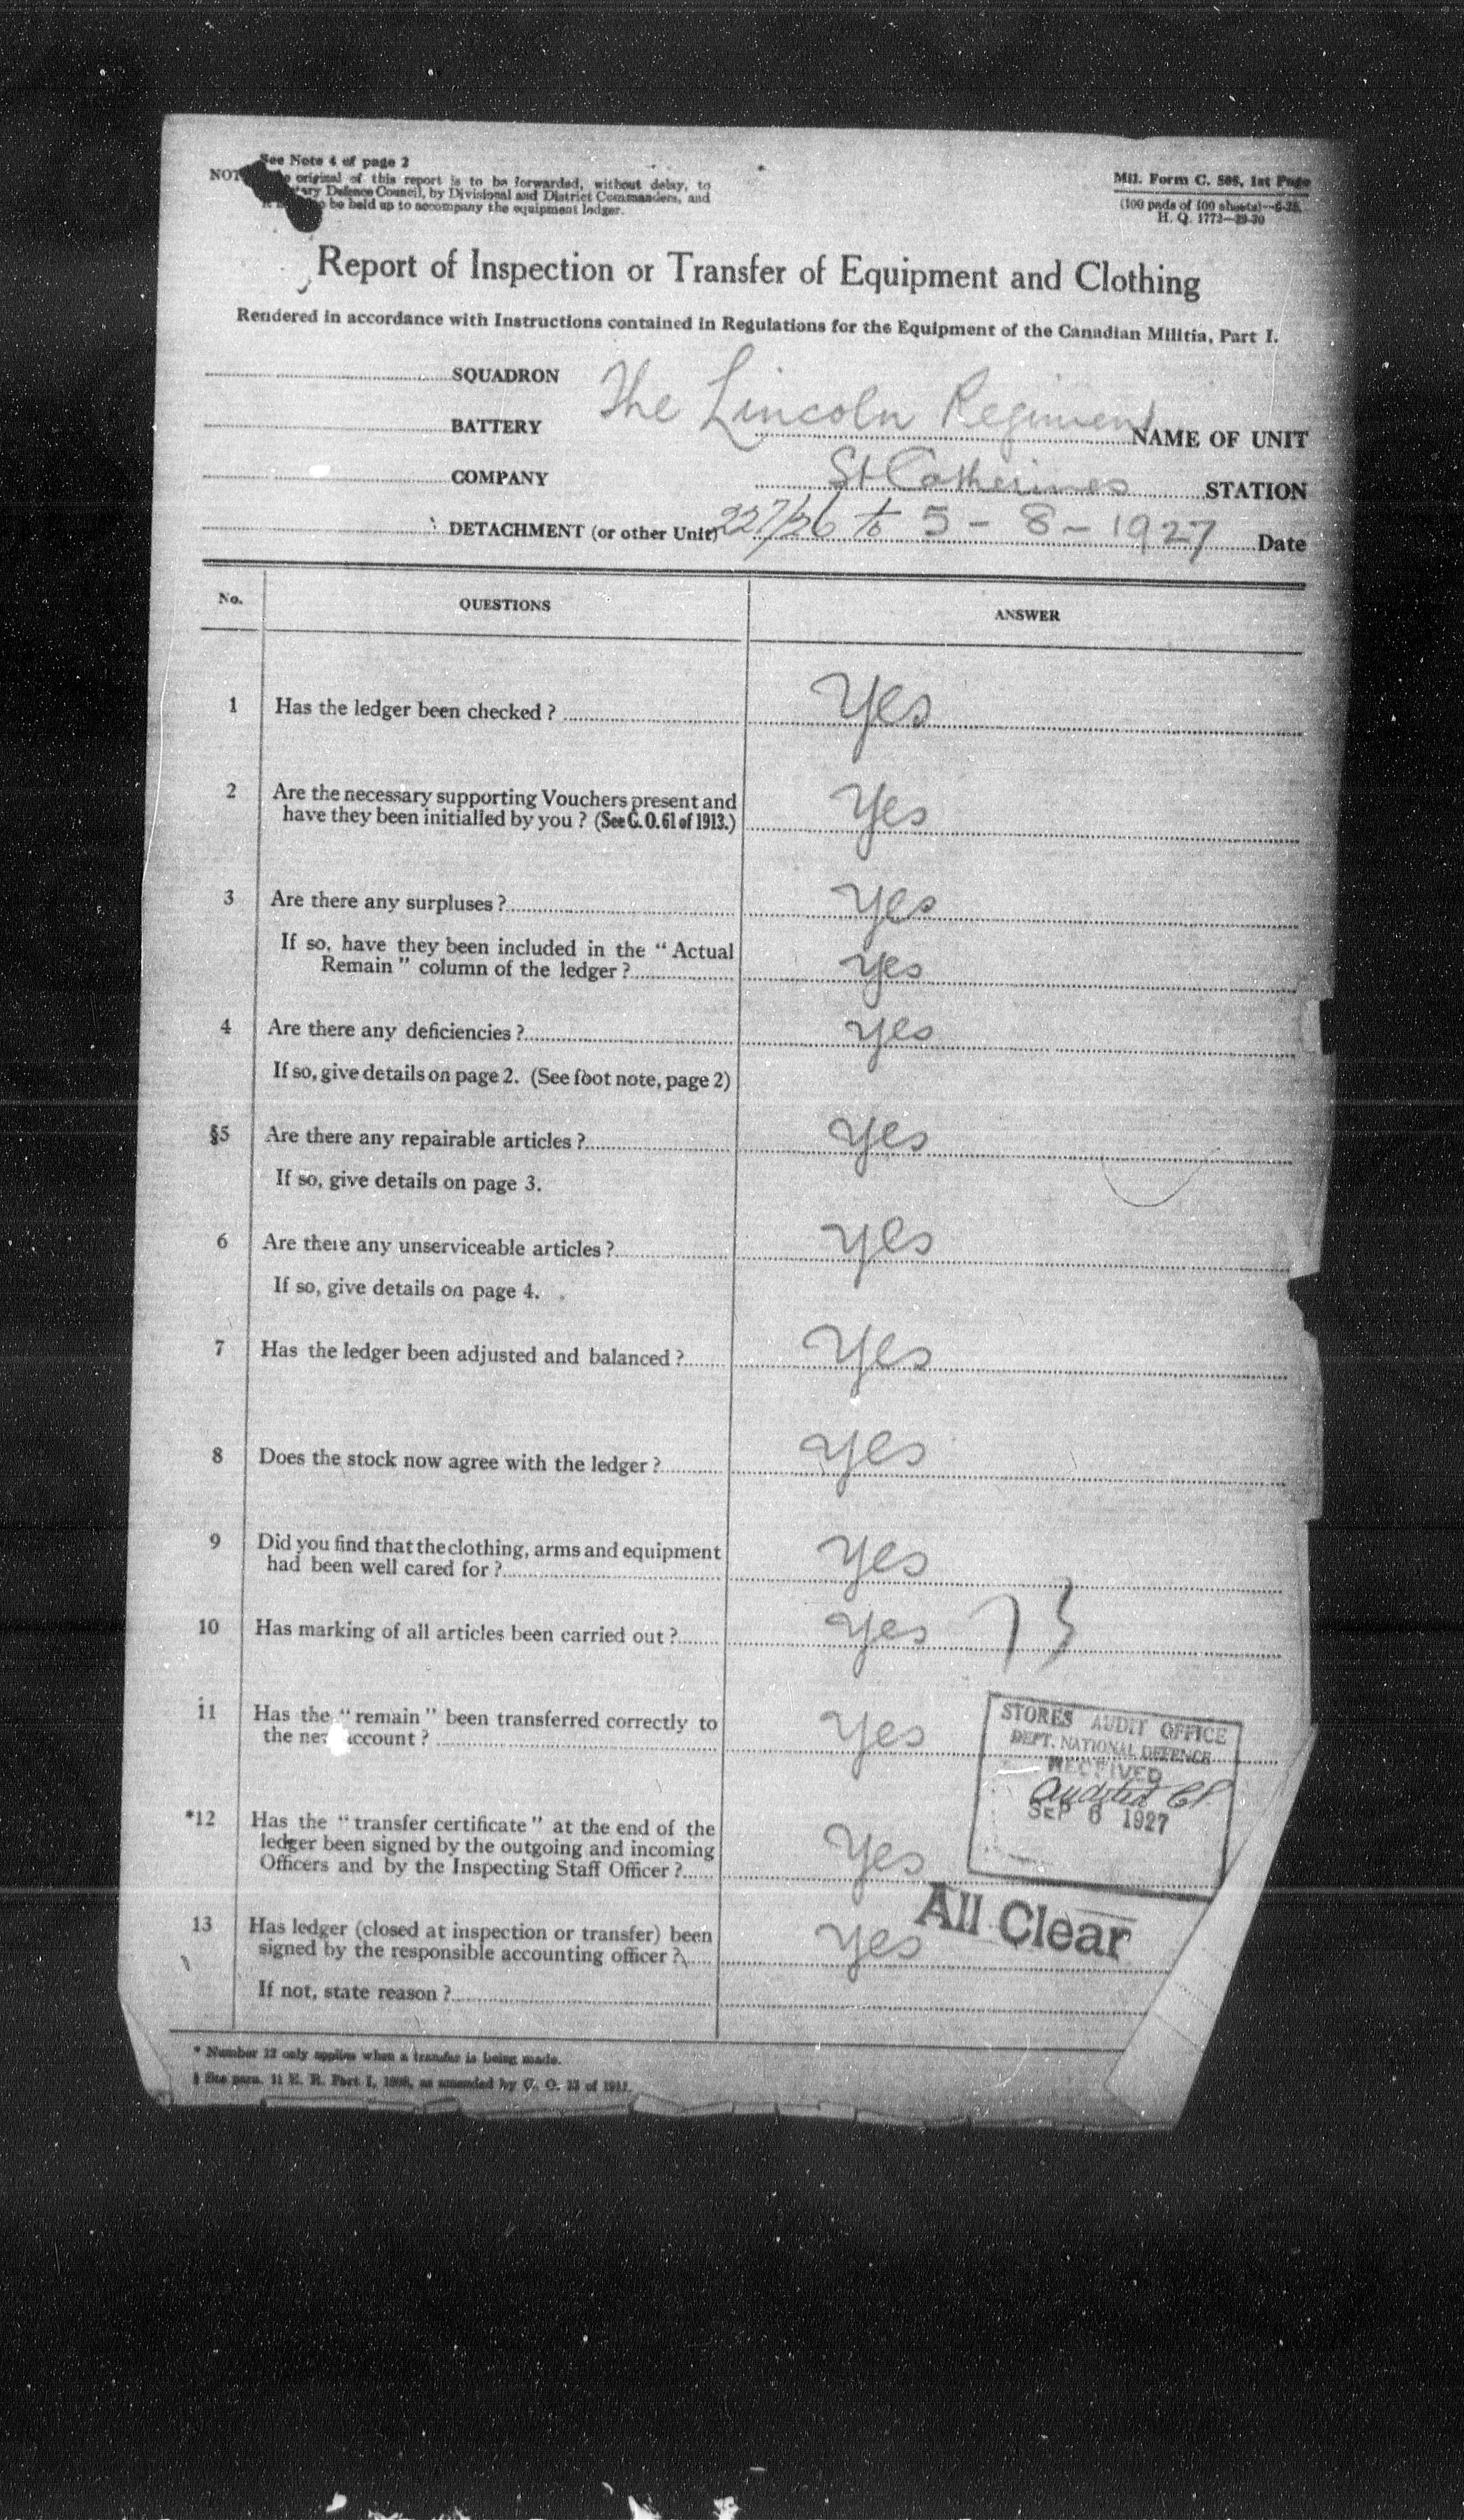 See Note 4 of page 2
original of this report is to be forwarded, without delay, to
Defence Council, by Divisional and District Commanders, and
be held up to accompany the equipment ledger.
Mil. Form C. 505, 1st Page
(100 pads of 100 sheets)
H. Q. 1772—39-30
Report of Inspection or Transfer of Equipment and Clothing
Rendered in accordance with Instructions contained in Regulations for the Equipment of the Canadian Militia, Part I.
SQUADRON
BATTERY The Lincoln Regiment NAME OF UNIT
COMPANY St Catherines STATION
DETACHMENT (or other Unit) 22/7/26 to 5 - 8 - 1927 Date
No. QUESTIONS ANSWER
1 Has the ledger been checked ? Yes
2 Are the necessary supporting Vouchers present and
have they been initialled by you ? (See G. O. 61 of 1913.) Yes
3 Are there any surpluses ? Yes
If so, have they been included in the “ Actual
Remain ” column of the ledger ? Yes
4 Are there any deficiencies ? Yes
If so, give details on page 2. (See foot note, page 2)
§5 Are there any repairable articles ? Yes
If so, give details on page 3.
6 Are there any unserviceable articles ? Yes
If so, give details on page 4.
7 Has the ledger been adjusted and balanced ? Yes
8 Does the stock now agree with the ledger ? Yes
9 Did you find that the clothing, arms and equipment
had been well cared for ? Yes
10 Has marking of all articles been carried out ? Yes
11 Has the “ remain ” been transferred correctly to
the new account ? Yes
STORES AUDIT OFFICE
DEPT. NATIONAL DEFENCE
RECEIVED
Audited
SEP 6 1927
*12 Has the “ transfer certificate ” at the end of the
ledger been signed by the outgoing and incoming
Officers and by the Inspecting Staff Officer ? Yes
All Clear
13 Has ledger (closed at inspection or transfer) been
signed by the responsible accounting officer ? Yes
If not, state reason ?
* Number 12 only applies when a transfer is being made.
§ See para. 11 E. R. Part I, 1908, as amended by G. O. 13 of